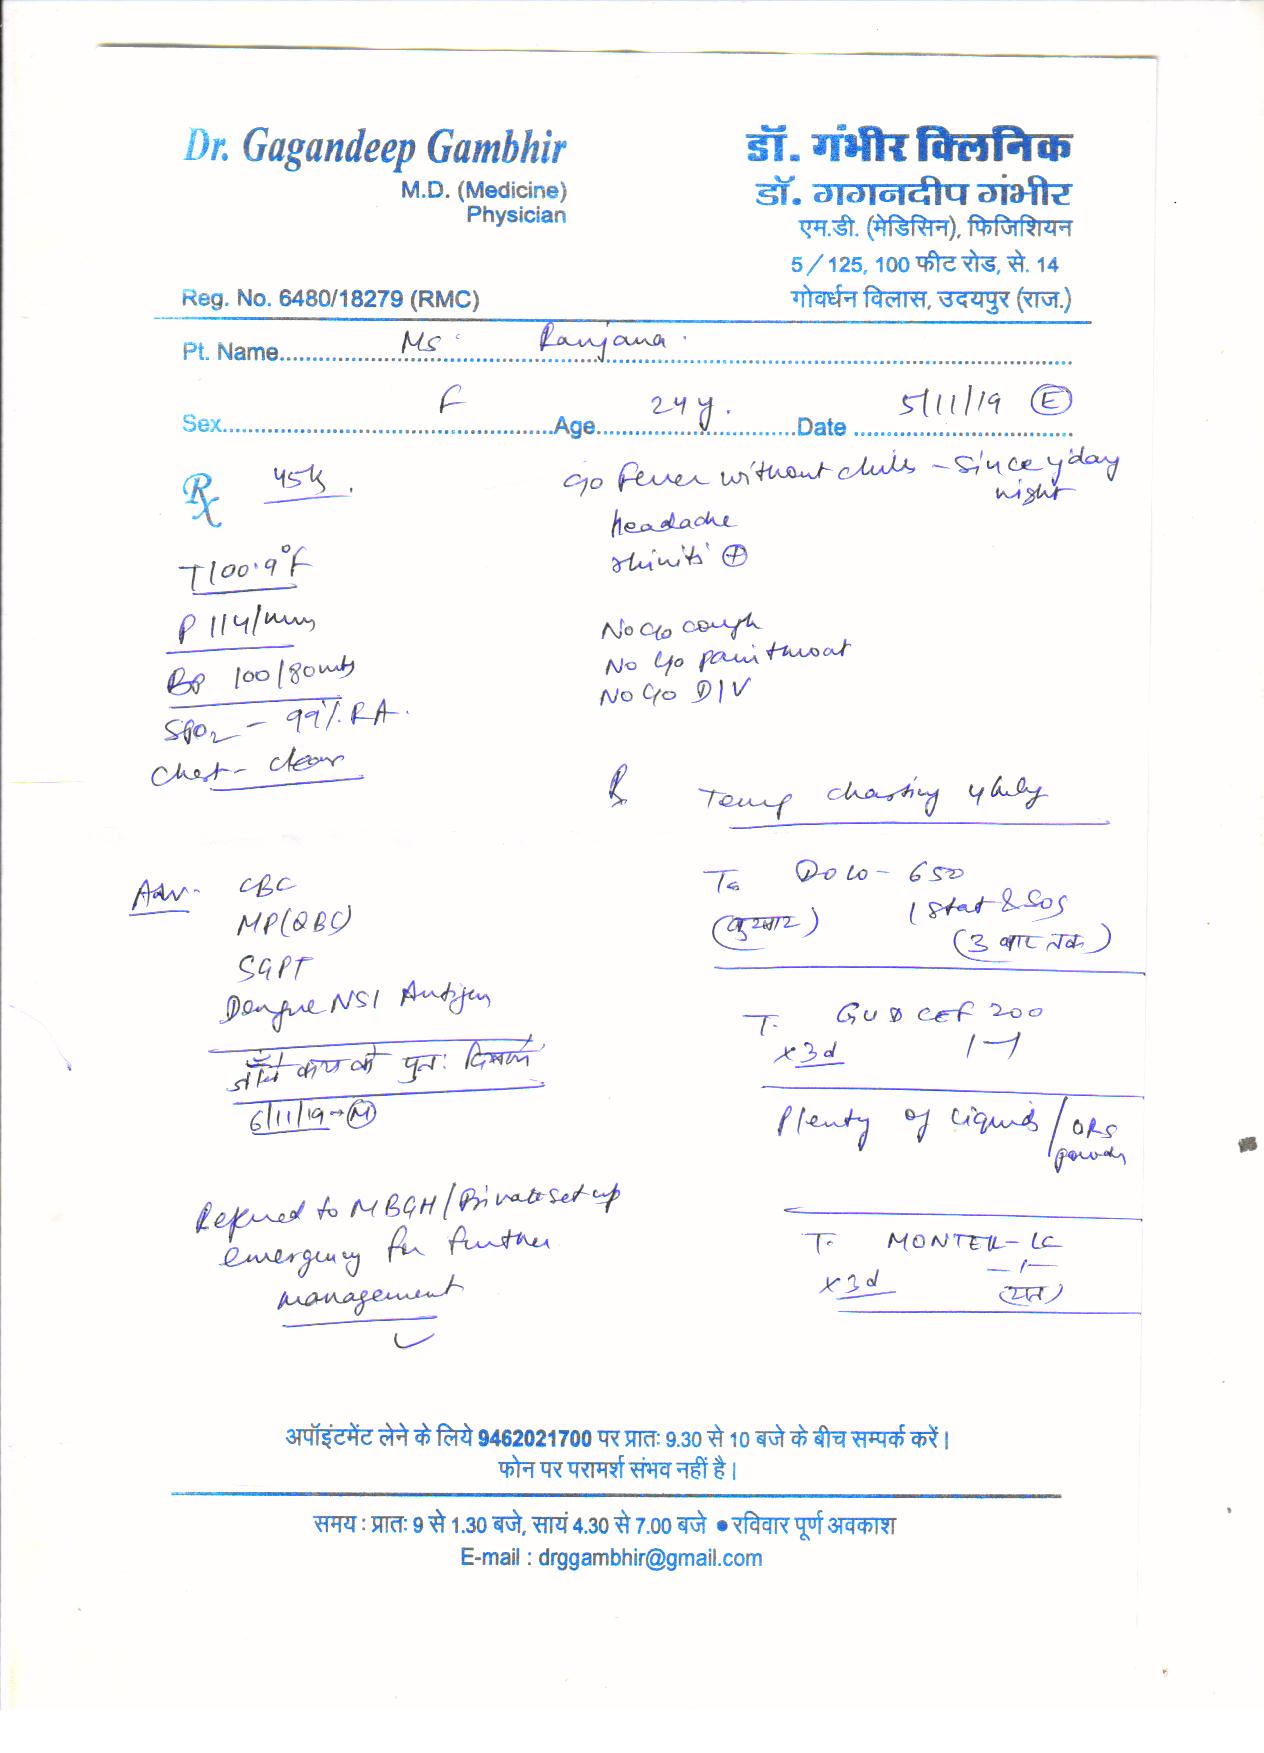 Dr. Gagandeep Gambhir
M.D. (Medicine)
Physician
Reg. No. 6480/18279 (RMC)
डॉ. गंभीर क्लिनिक
डॉ. गगनदीप गंभीर
एम.डी. (मेडिसिन), फिजिशियन
5/125, 100 फीट रोड, से. 14
गोवर्धन विलास, उदयपुर (राज.)
Pt. Name Ms. Ranjana
Sex F Age 24 y. Date 5/11/19 (E)
Rx 45 k
T 100.9°F
P 114/min
BP 100/80
SPO2 - 99% RA.
Chest - clear
c/o Fever without chills - since y'day
night
headache
rhinitis (+)
No c/o cough
No c/o pain throat
No c/o D/V
Adv. CBC
MP (QBC)
SGPT
Dengue NS1 Antigen
पुनः
6/11/19 → (M)
Referred to MBGH/Private set up
emergency for further
management
R Temp charting 4 hrly
Ta DOLO - 650
(बुखार) 1 Stat & SOS
(3 बार तक)
T. GUDCEF 200
x 3d 1-1
Plenty of liquids / ORS
powder
T. MONTEK - LC
x 3d - 1 -
(रात)
अपॉइंटमेंट लेने के लिये 9462021700 पर प्रातः 9.30 से 10 बजे के बीच सम्पर्क करें।
फोन पर परामर्श संभव नहीं है।
समय : प्रातः 9 से 1.30 बजे, सायं 4.30 से 7.00 बजे • रविवार पूर्ण अवकाश
E-mail : drggambhir@gmail.com